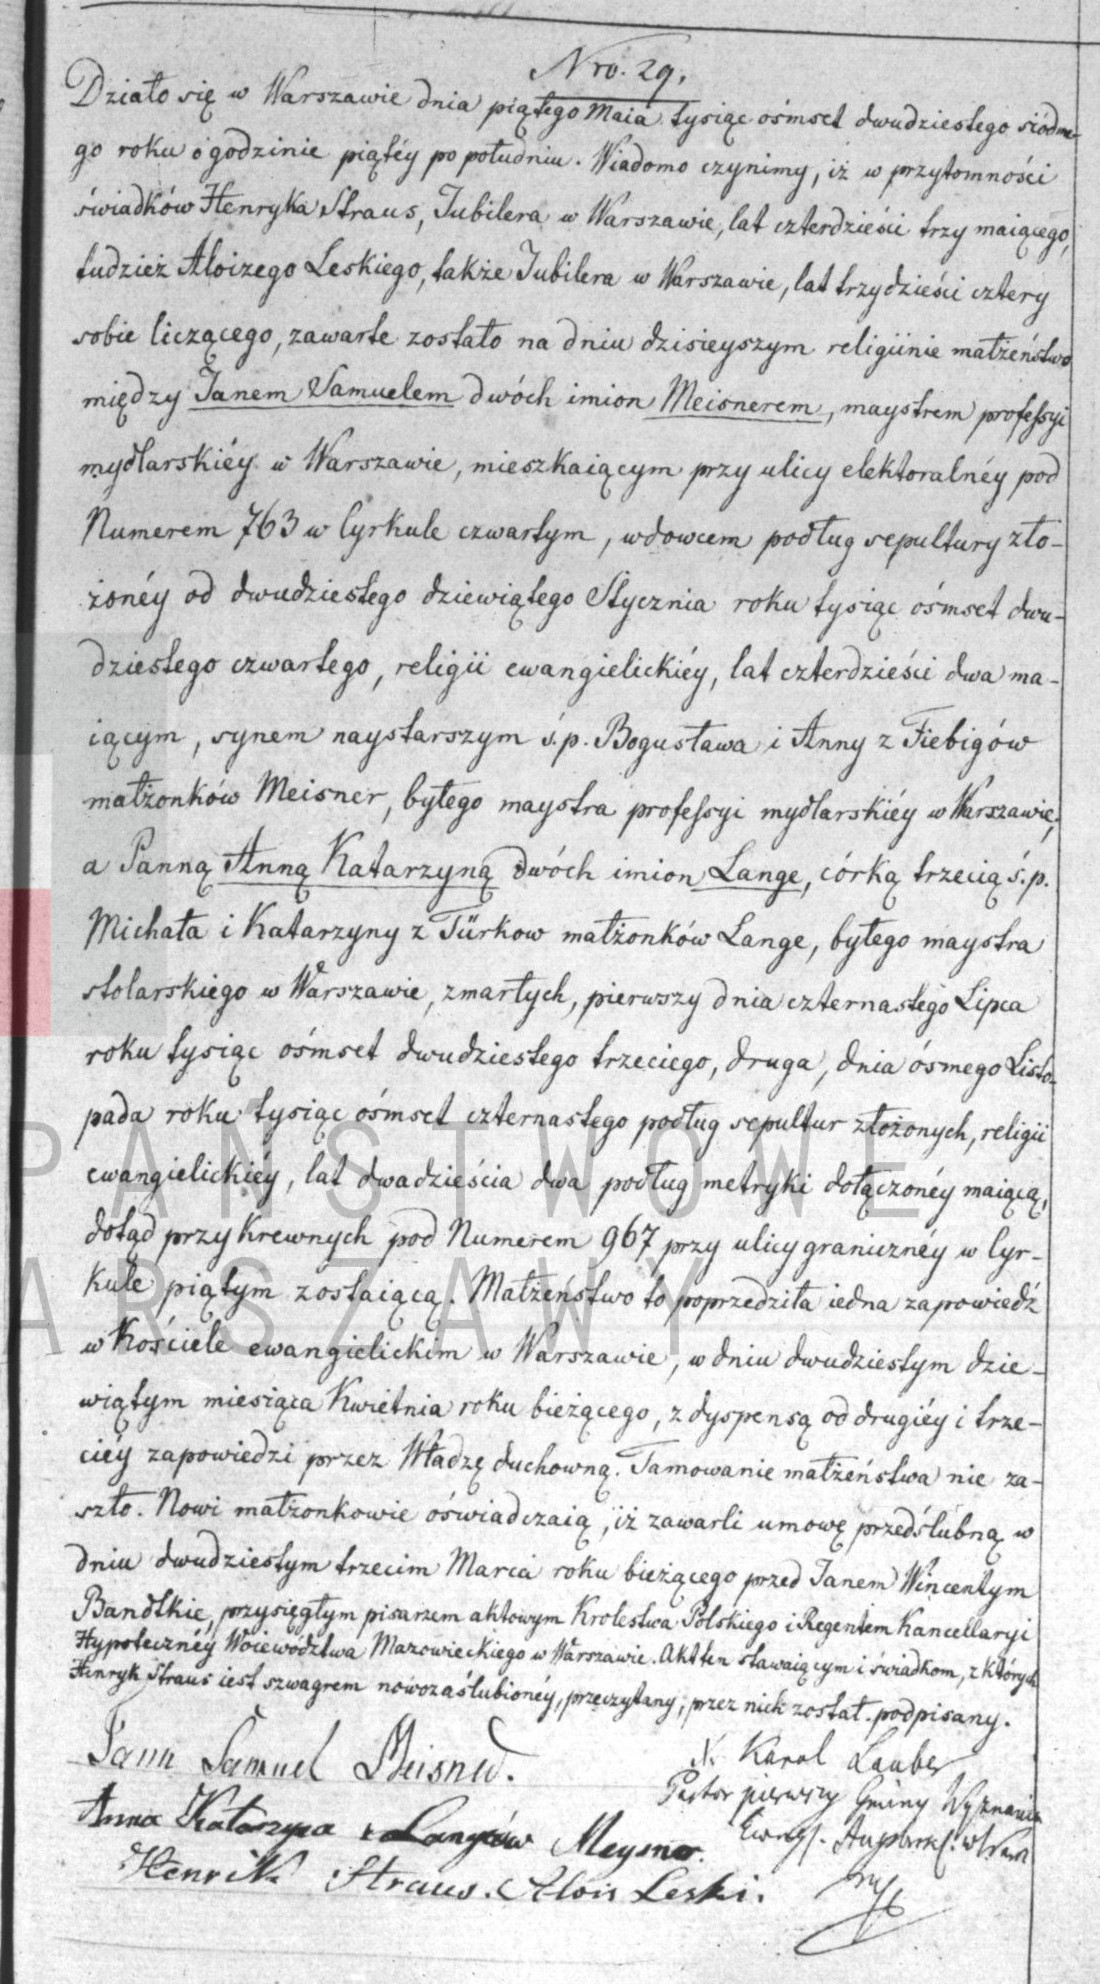 Nro. 29.
Działo się w Warszawie dnia piątego Maia tysiąc ośmset dwudziestego siódme-
go roku o godzinie piątéy po południu. Wiadomo czynimy, iż w przytomności
świadków Henryka Straus, Jubilera w Warszawie, lat czterdzieści trzy maiącego,
tudzież Aloizego Leskiego, także Jubilera w Warszawie, lat trzydzieści cztery
sobie liczącego, zawarte zostało na dniu dzisieyszym religiinie małżeństwo
między Janem Samuelem dwóch imion Meisnerem, maystrem professyi
mydlarskiéy w Warszawie, mieszkaiącym przy ulicy elektoralnéy pod
Numerem 763 w Cyrkule czwartym, wdowcem podług sepultury zło-
żonéy od dwudziestego dziewiątego Stycznia roku tysiąc ośmset dwu-
dziestego czwartego, religii ewangielickiéy, lat czterdzieści dwa ma-
iącym, synem naystarszym ś.p. Bogusława i Anny z Fiebigów
małżonków Meisner, byłego maystra professyi mydlarskiéy w Warszawie,
a Panną Anną Katarzyną dwóch imion Lange, córką trzecią ś.p.
Michała i Katarzyny z Türkow małżonków Lange, byłego maystra
stolarskiego w Warszawie, zmarłych, pierwszy dnia czternastego Lipca
roku tysiąc ośmset dwudziestego trzeciego, druga, dnia ósmego Listo-
pada roku tysiąc ośmset czternastego podług sepultur złożonych, religii
ewangielickiéy, lat dwadzieścia dwa podług metryki dołączonéy maiącą,
dotąd przy Krewnych pod Numerem 967 przy ulicy granicznéy w Cyr-
kule piątym zostaiącą. Małżeństwo to poprzedziła iedna zapowiedź
w Kościele ewangielickim w Warszawie, w dniu dwudziestym dzie-
wiątym miesiąca Kwietnia roku bieżącego, z dyspensą od drugiéy i trze-
ciéy zapowiedzi przez Władzę duchowną. Tamowanie małżeństwa nie za-
szło. Nowi małżonkowie oświadczaią, iż zawarli umowę przedślubną w
dniu dwudziestym trzecim Marca roku bieżącego przed Janem Wincentym
Bandtkie, przysięgłym pisarzem aktowym Krolestwa Polskiego i Regentem Kancellaryi
Hypotecznéy Woiewództwa Mazowieckiego w Warszawie. Akt ten stawaiącym i świadkom, z których
Henryk Straus iest szwagrem nowozaślubionéy, przeczytany, przez nich został podpisany.
Jann Samuel Meisner.
X. Karol Lauber
Pastor pierwszy Gminy Wyznania
Anna Katarzyna Langów Meysner.
Henrik Straus. Alois Leski.
PAŃSTWOWE
ARSZAWY